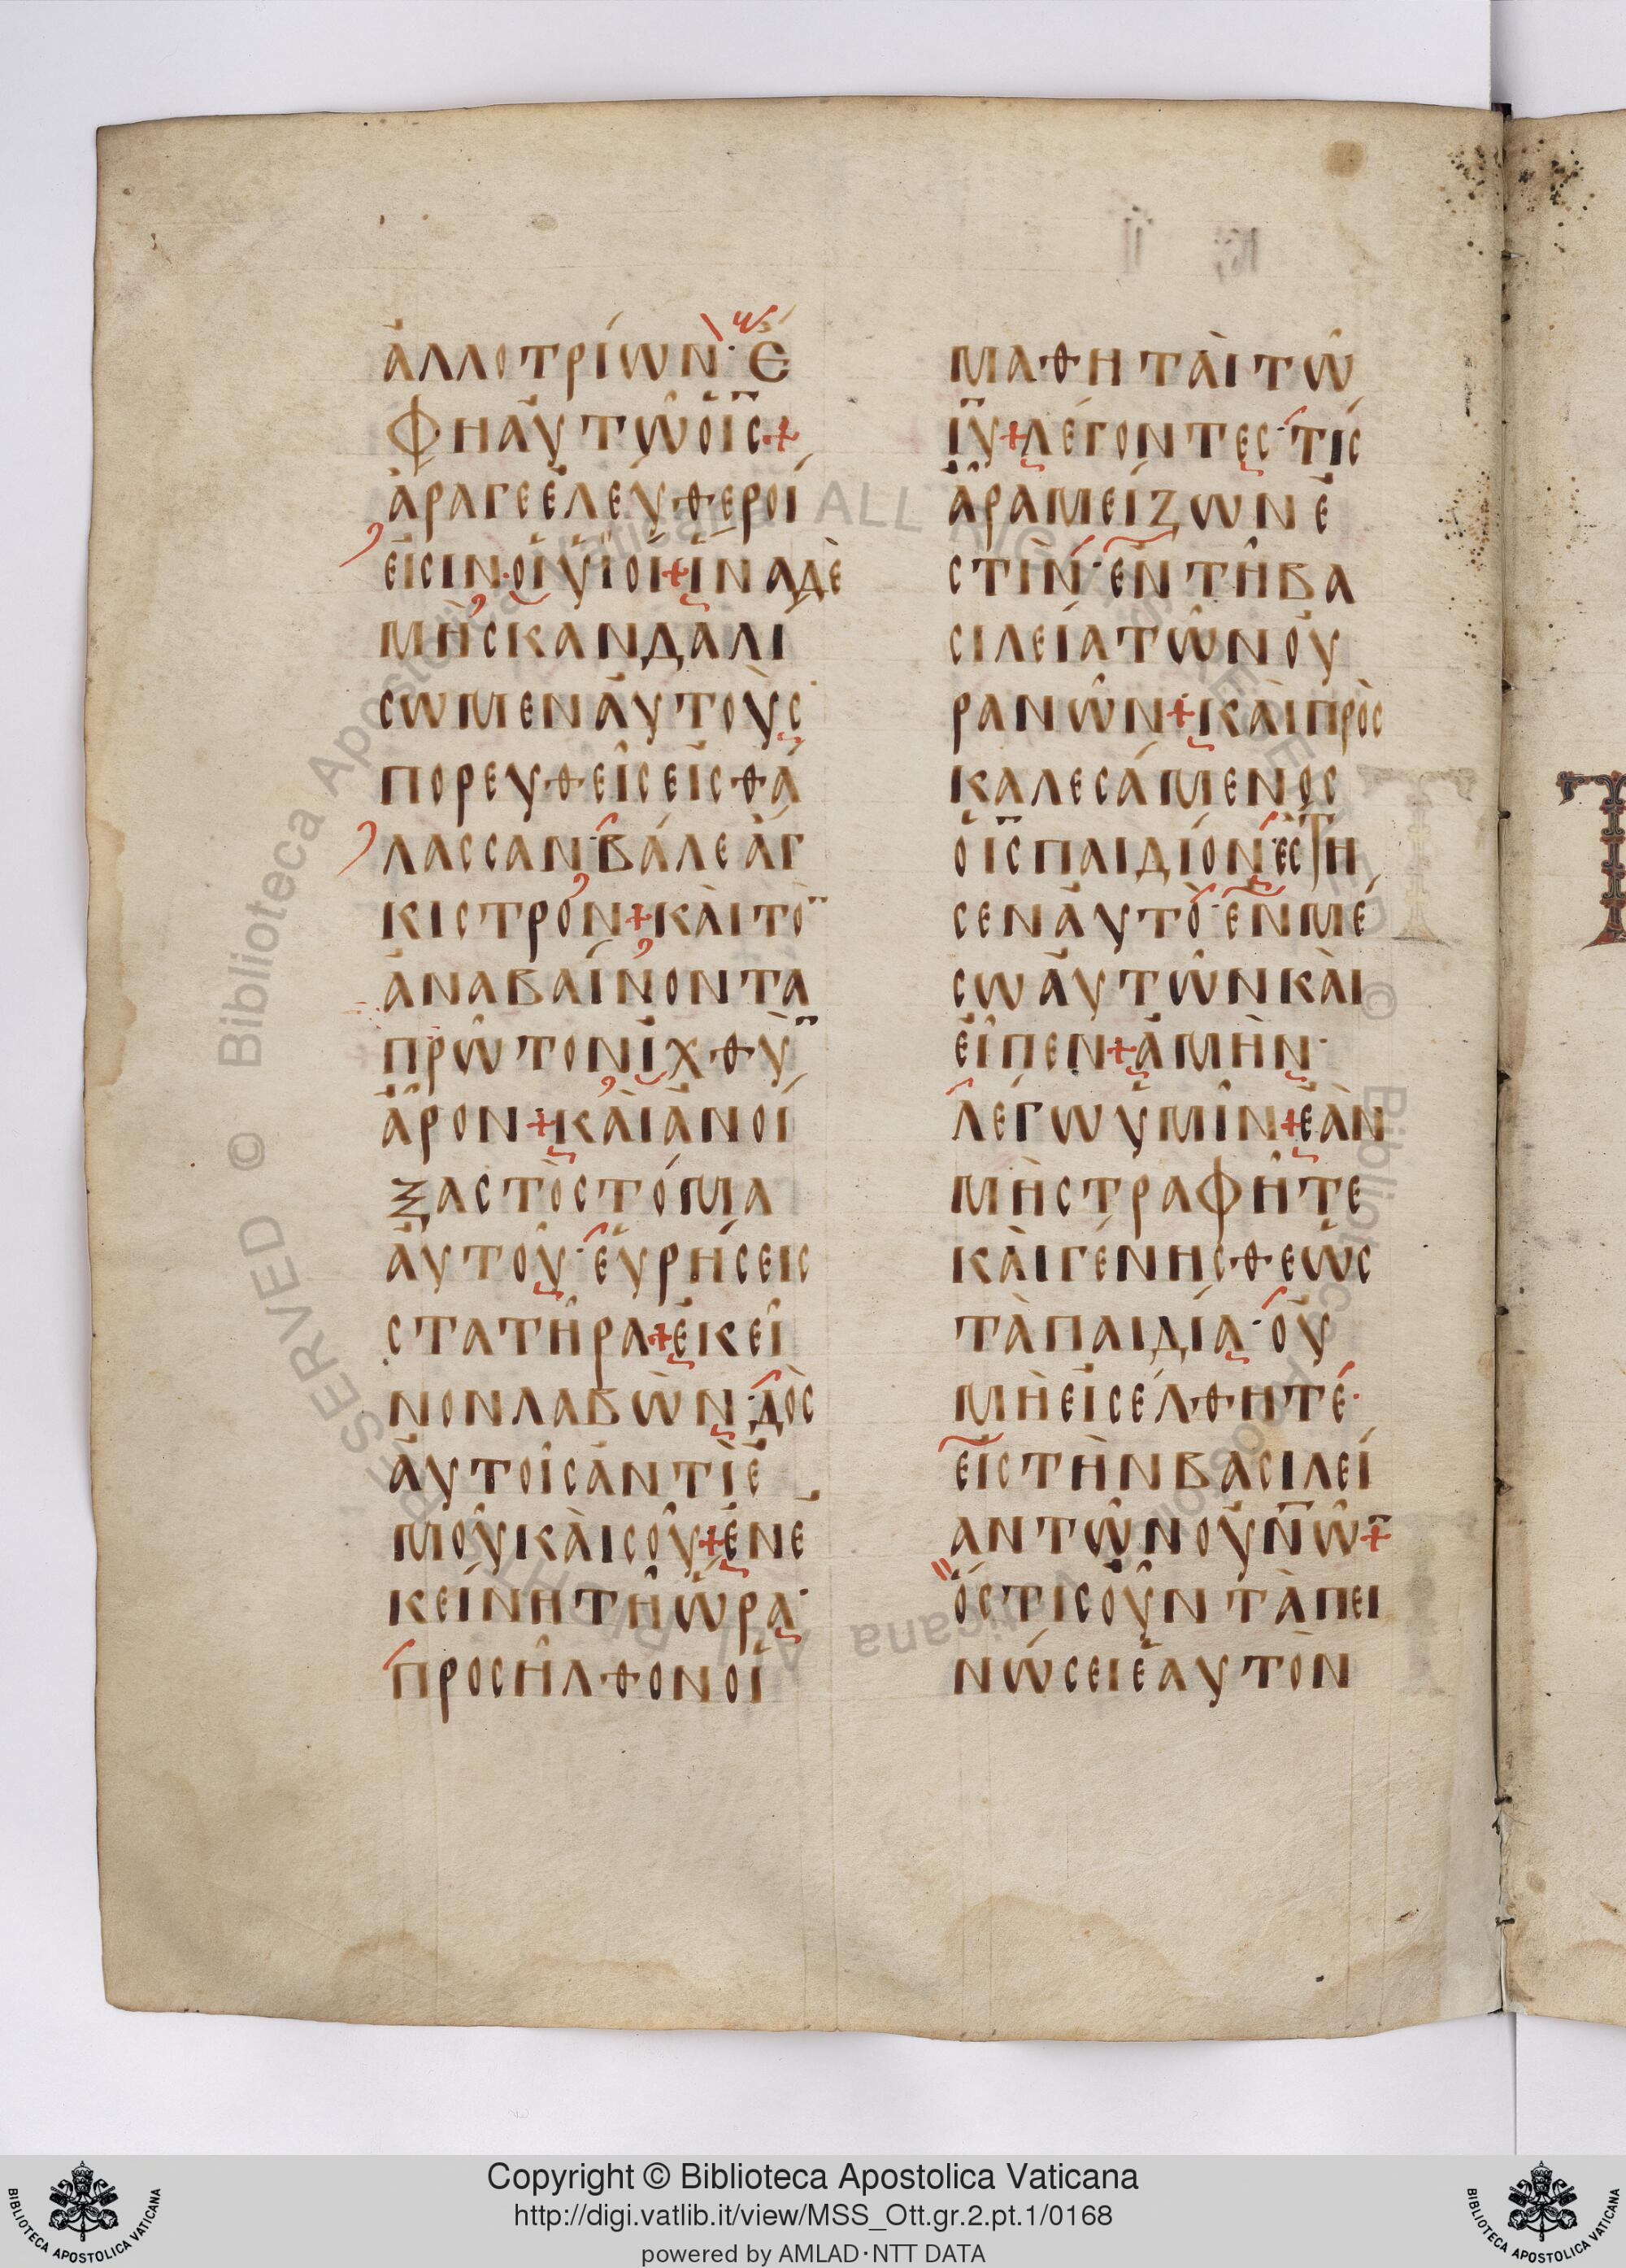 ἀλλοτρίων· ἔ
φη ἀυτῶ ὁ ι̅ς̅ +
ἄρα γε ἐλεύθεροί
εἰσιν· οἱ υἱοί + ἵνα δὲ
μὴ σκανδαλί
σωμεν ἀυτοὺς·
πορευθεὶς εἰς θά
λασσαν· βάλε ἄγ
κιστρον + κὰι τὸ̅
ἀναβαίνοντα
πρῶτον ἰχθὺ̅
ἆρον + κὰι ἀνοί
ξας τὸ στόμα
ἀυτοῦ· ἑυρήσεις
στατῆρα + ἐκεῖ
νον λαβὼν· δὸς
ἀυτοῖς ἀντὶ ἐ
μοῦ κὰι σοῦ + ἐν ἐ
κείνη τῆ ὥρα·
προσῆλθον οἱ
μαθητὰι τῶ
ι̅υ̅ + λέγοντες· τίς
ἄρα μείζων ἐ
στὶν· ἐν τῆ βα
σιλεία τῶν οὐ
ρανῶν + κὰι προσ
καλεσάμενος
ὁ ι̅ς̅ παιδίον· ἔστη
σεν ἀυτὸ· ἐν μέ
σω ἀυτῶν κὰι
εἶπεν + ἀμὴν·
λέγω ὑμῖν + ἐὰν
μὴ στραφῆτε
κὰι γένησθε ὡς
τὰ παιδία· οὐ
μὴ εἰσέλθητέ·
εἰς τὴν βασιλεί
αν τῶν ουν̅ῶ̅ +
ὅστις οὖν ταπει
νώσει ἑαυτὸν
Copyright © Biblioteca Apostolica Vaticana
http://digi.vatlib.it/view/MSS_Ott.gr.2.pt.1/0168
powered by AMLAD·NTT DATA
BIBLIOTECA APOSTOLICA VATICANA
BIBLIOTECA APOSTOLICA VATICANA